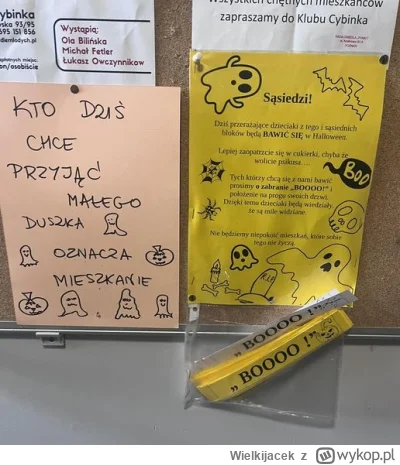 Wszystkich chętnych mieszkańców
zapraszamy do Klubu Cybinka
ybinka
ska 93/95
695 151 856
diernlodych.pl
Wystąpią:
Ola Bilińska
Michał Fetler
Łukasz Owczynnikow
KTO DZIŚ
CHCE
PRZYJĄĆ
MAŁEGO
DUSZKA
OZNACZA
MIESZKANIE
Sąsiedzi!
Dziś przerażające dzieciaki z tego i sąsiednich
bloków będą BAWIĆ SIĘ w Halloween.
Lepiej zaopatrzcie się w cukierki, chyba że
wolicie psikusa ...
Tych którzy chcą się z nami bawić
prosimy o zabranie „BOOOO!” i
położenie na progu swoich drzwi.
Dzięki temu dzieciaki będą wiedziały,
że są mile widziane.
Nie będziemy niepokoić mieszkań, które sobie
tego nie życzą.
BOO
R.I.P.
„ BOOOO !”
„ BOOOO !”
Wielkijacek z wykop.pl